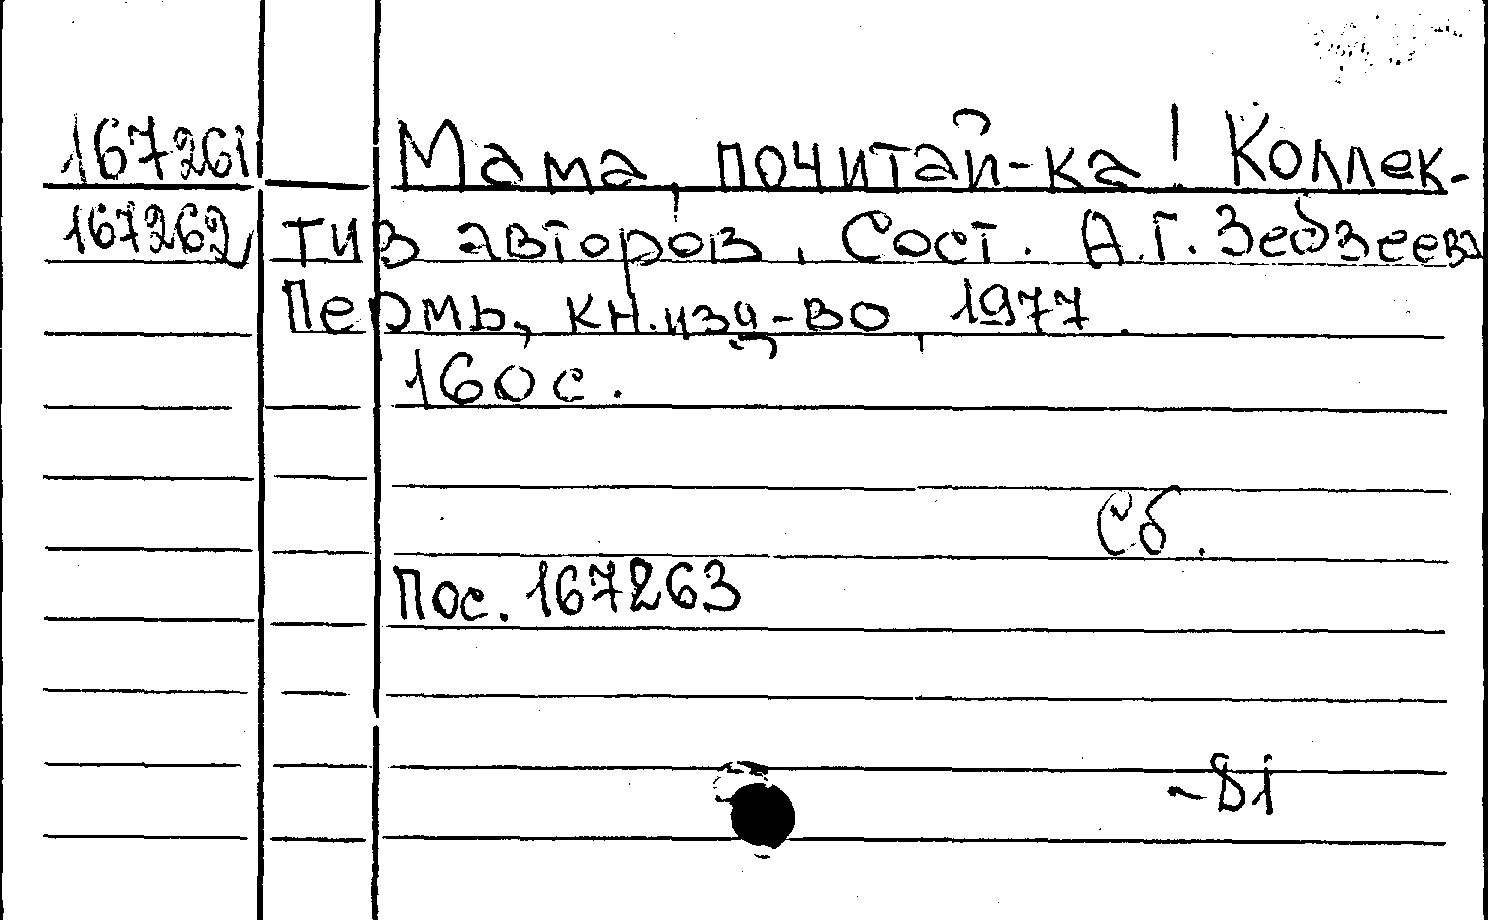 167261 Мама, почитай-ка! Коллек-
167262 тив авторов. Сост. А.Г. Зебзеева
Пермь, кн.изд-во, 1977.
160 с.
Сб.
Пос. 167263
-81